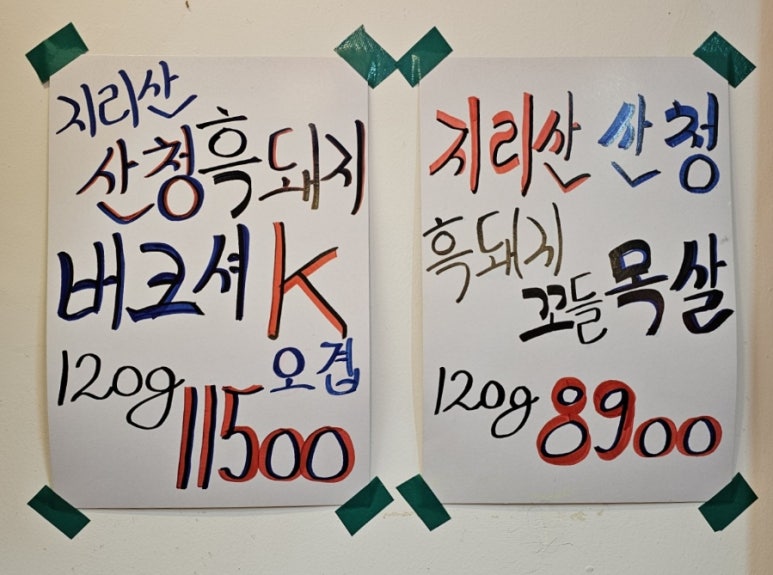 지리산
산청흑돼지
버크셔 K
오겹
120g 11500
지리산 산청
흑돼지
꼬들목살
120g 8900